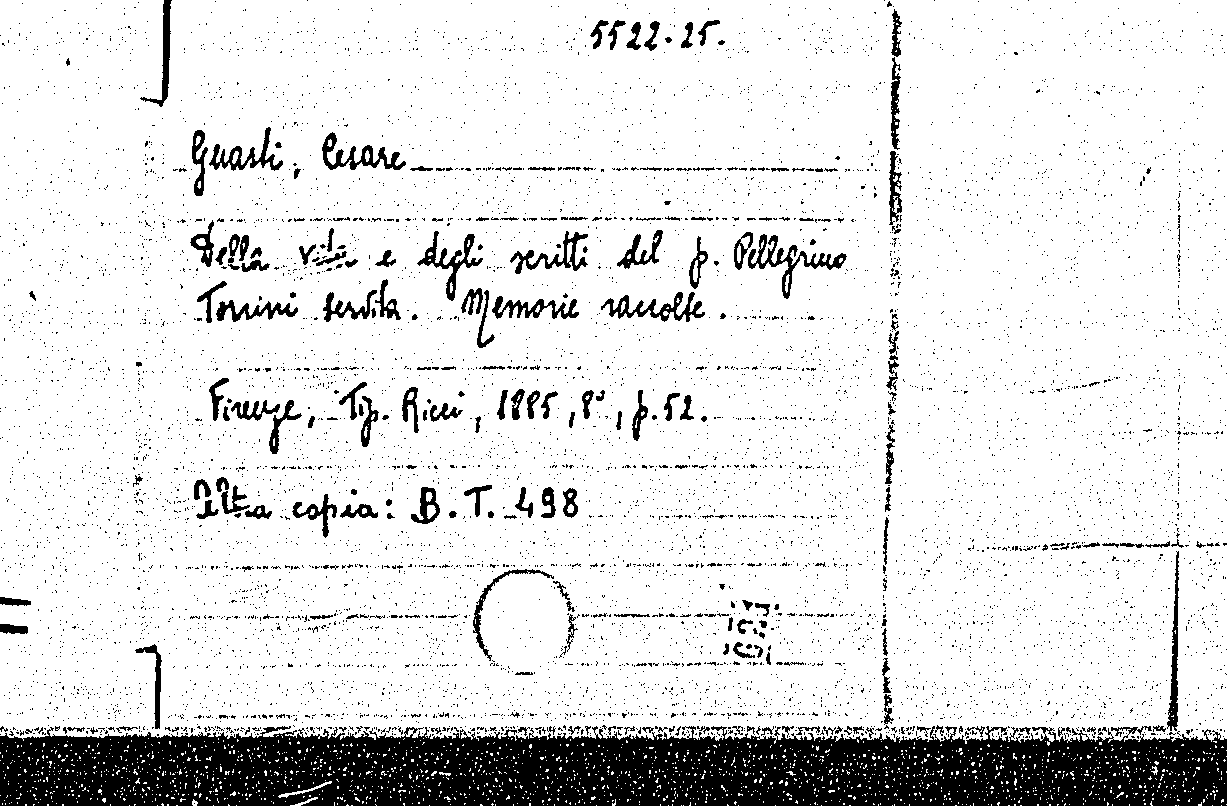 5522.25.
Guasti, Cesare
Della vita e degli scritti del p. Pellegrino
Tonini servita. Memorie raccolte.
Firenze, Tip. Ricci, 1885, 8°, p.52.
Altra copia: B.T. 498